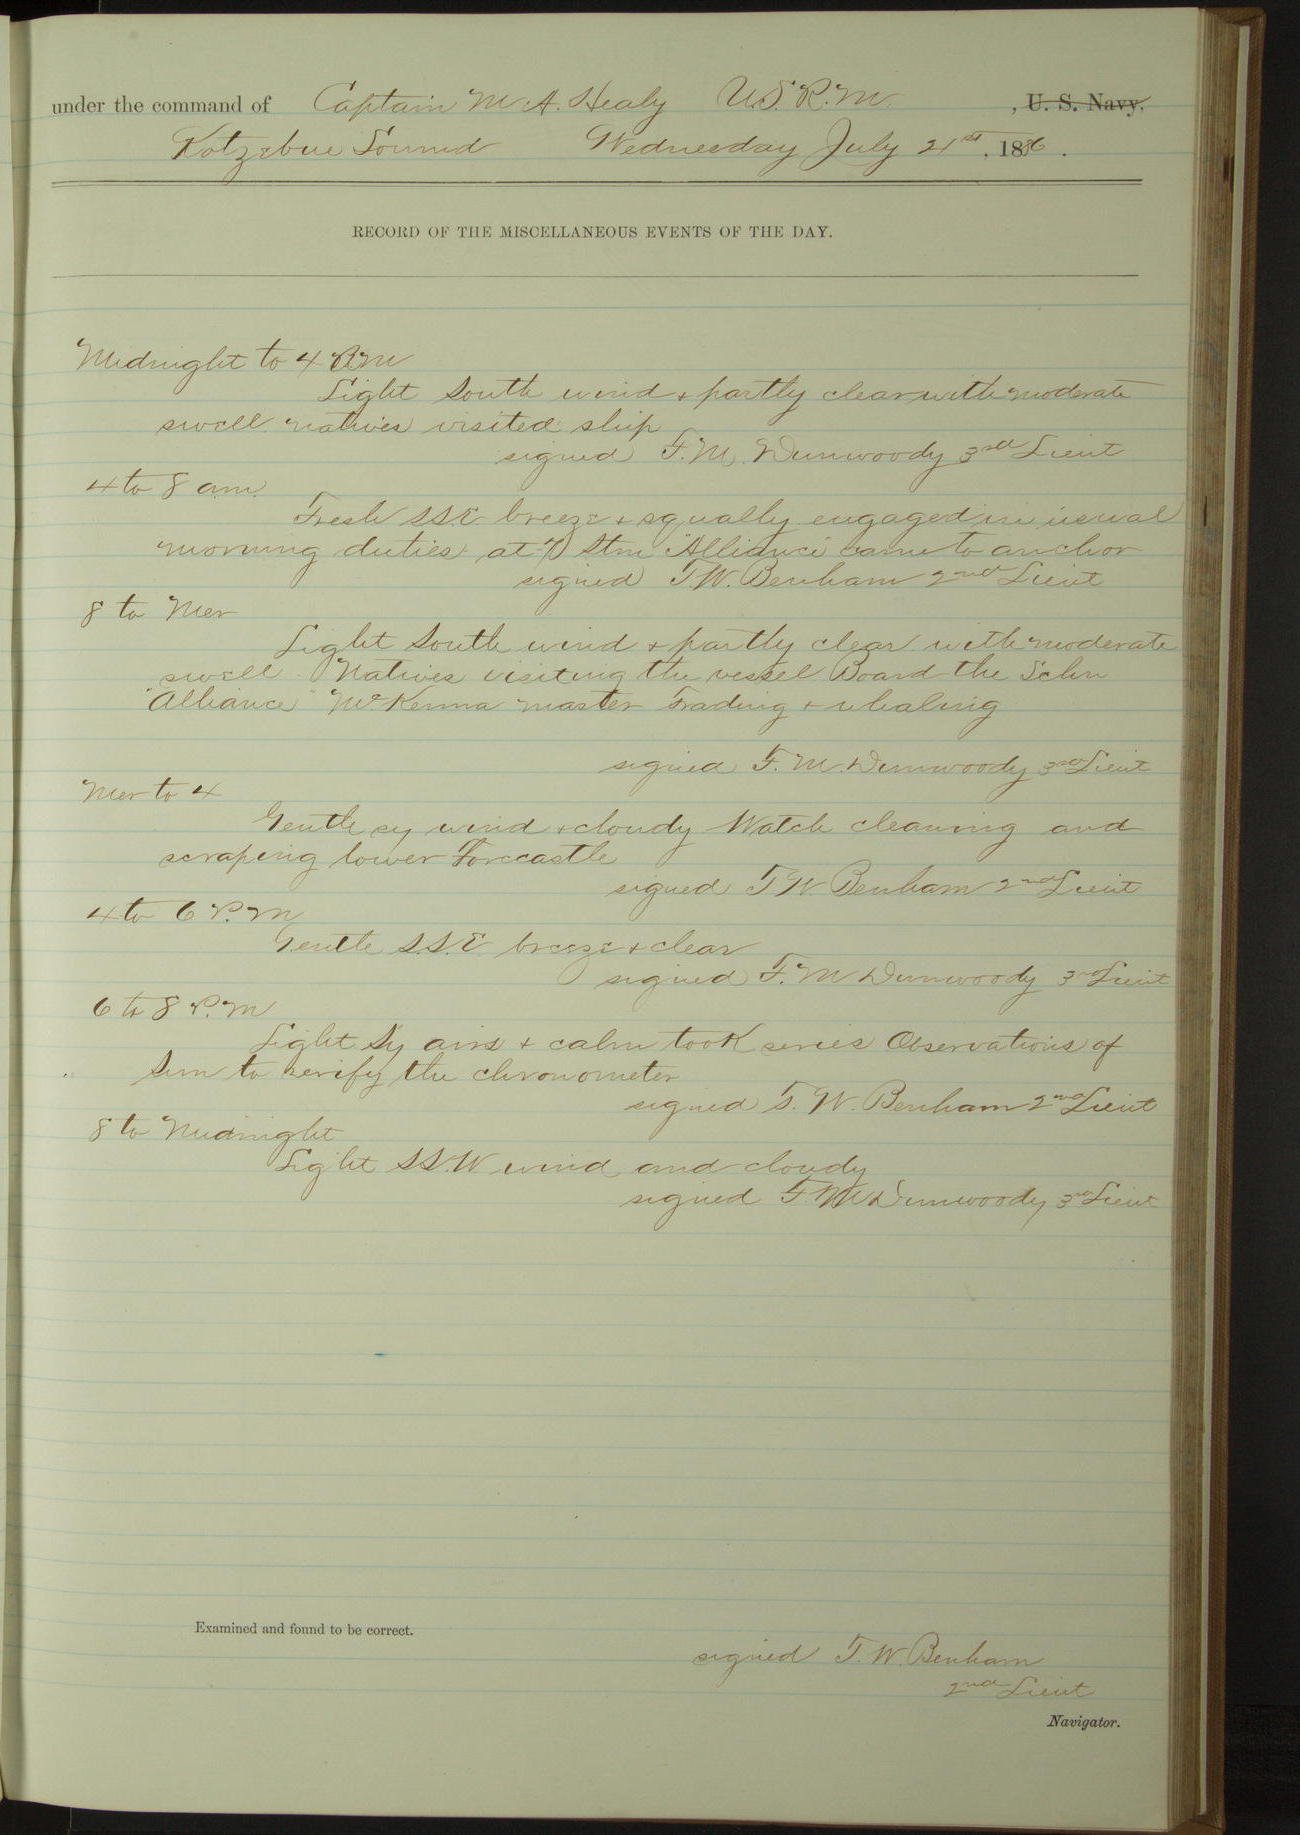 under the command of Captain M. A. Healy U.S.R.M. , U. S. Navy.
Kotzebue Sound Wednesday July 21st, 1886.
RECORD OF THE MISCELLANEOUS EVENTS OF THE DAY.
Midnight to 4 A.M
Light South wind & partly clear with moderate
swell natives visited ship
signed F. M. Dunwoody 3rd Lieut
4 to 8 a.m.
Fresh SSE breeze & squally engaged in usual
morning duties at 7 Stm "Alliance" came to anchor
signed T. W. Benham 2nd Lieut
8 to Mer
Light South wind & partly clear with moderate
swell. Natives visiting the vessel Board the Schn
"Alliance" McKenna master Trading & whaling
signed F. M. Dunwoody 3rd Lieut
Mer to 4
Gentle sy wind & cloudy Watch cleaning and
scraping lower Forecastle
signed T W Benham 2nd Lieut
4 to 6 P.M
Gentle S.S.E breeze & clear
signed F. M Dunwoody 3rd Lieut
6 to 8 P.M
Light Sy airs & calm took series Observations of
Sun to verify the chronometer
signed T. W. Benham 2nd Lieut
8 to Midnight
Light SS.W wind and cloudy
signed F. M Dunwoody 3rd Lieut
Examined and found to be correct.
signed T. W. Benham
2nd Lieut
Navigator.